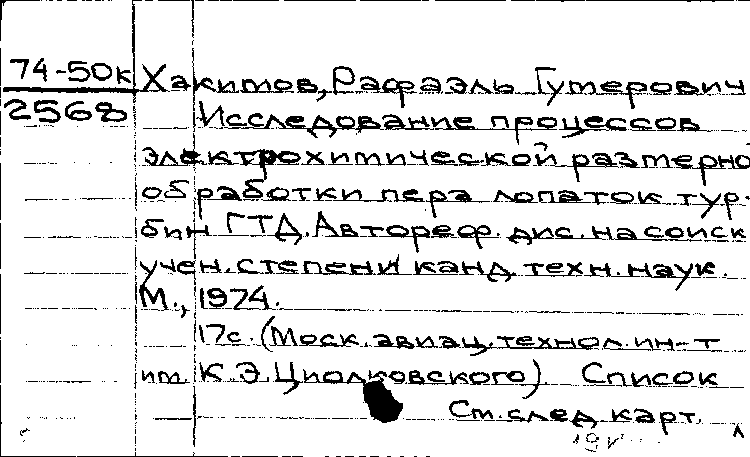 74-50к
2568
Хакимов, Рафаэль Гумерович
Исследование процессов
электрохимической размерно
обработки пера лопаток тур-
бин ГТД. Автореф. дис. на соиск
учен. степени канд. техн. наук.
М., 1974.
17с. (Моск. авиац. технол. ин-т
им. К.Э. Циолковского). Список
См. след. карт.